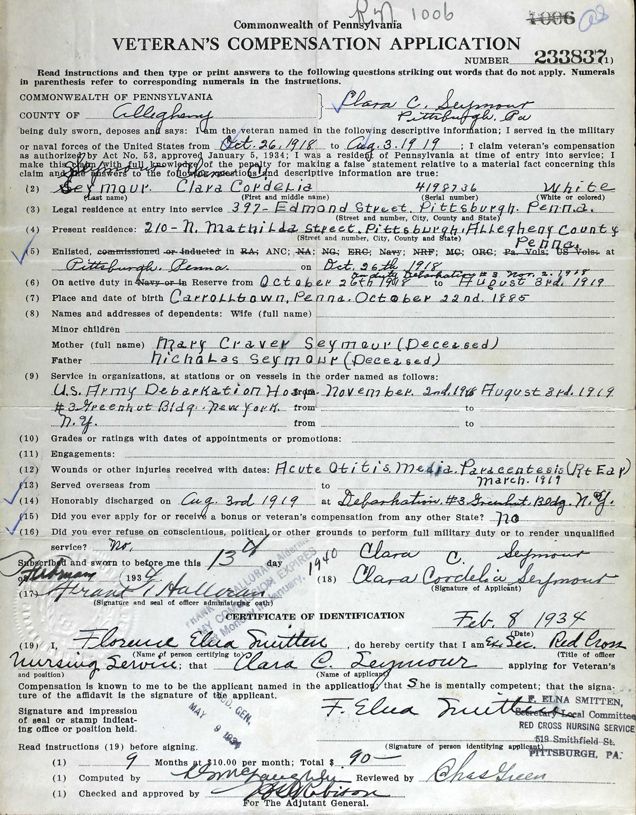 1006
1006
Commonwealth of Pennsylvania
VETERAN'S COMPENSATION APPLICATION
NUMBER 233837(1)
Read instructions and then type or print answers to the following questions striking out words that do not apply. Numerals
in parenthesis refer to corresponding numerals in the instructions.
COMMONWEALTH OF PENNSYLVANIA
COUNTY OF Allegheny
Clara C. Seymour
Pittsburgh, Pa
being duly sworn, deposes and says: I am the veteran named in the following descriptive information; I served in the military
or naval forces of the United States from Oct. 26, 1918 to Aug. 3. 1919 ; I claim veteran's compensation
as authorized by Act No. 53, approved January 5, 1934; I was a resident of Pennsylvania at time of entry into service; I
make this claim with full knowledge of the penalty for making a false statement relative to a material fact concerning this
claim and the answers to the following questions and descriptive information are true:
(2) Seymour Clara Cordelia 4198736 White
(Last name) (First and middle name) (Serial number) (White or colored)
(3) Legal residence at entry into service 397- Edmond Street. Pittsburgh. Penna.
(Street and number, City, County and State)
(4) Present residence: 210- N. Mathilda Street. Pittsburgh. Allegheny County
(Street and number, City, County and State) Penna.
(5) Enlisted, commissioned or inducted in RA; ANC; NA; NG; ERC; Navy; NRF; MC; ORC; Pa. Vols; US Vols; at
Pittsburgh. Penna. on Oct. 26th 1918
on duty Debarkation #3 Nov. 2. 1918
(6) On active duty in Navy or in Reserve from October 26th 1918 to August 3rd. 1919
(7) Place and date of birth Carrolltown, Penna. October 22nd. 1885
(8) Names and addresses of dependents: Wife (full name)
Minor children
Mother (full name) Mary Craver Seymour (Deceased)
Father Nicholas Seymour (Deceased)
(9) Service in organizations, at stations or on vessels in the order named as follows:
U.S. Army Debarkation Hosp. from November. 2nd. 1918 August 3rd. 1919
#3 Greenhut Bldg. New York. from to
N.Y. from to
(10) Grades or ratings with dates of appointments or promotions:
(11) Engagements:
(12) Wounds or other injuries received with dates: Acute Otitis Media. Paracentesis (Rt Ear)
March. 1919
(13) Served overseas from to
(14) Honorably discharged on Aug. 3rd 1919 at Debarkation. #3 Greenhut. Bldg. N.Y.
(15) Did you ever apply for or receive a bonus or veteran's compensation from any other State? No
(16) Did you ever refuse on conscientious, political, or other grounds to perform full military duty or to render unqualified
service? No.
Subscribed and sworn to before me this 13 day
Clara C. Seymour
of 1934
(17) (18) Clara Cordelia Seymour
(Signature and seal of officer administering oath) (Signature of Applicant)
MY COMMISSION EXPIRES
1940
CERTIFICATE OF IDENTIFICATION Feb. 8 1934
(Date)
(19) I, Florence Elna Smitten, do hereby certify I am Ex. Sec. Red Cross
(Name of person certifying to) (Title of officer
Nursing Service; that Clara C. Seymour applying for Veteran's
and position) (Name of applicant)
Compensation is known to me to be the applicant named in the application, that she is mentally competent; that the signa-
ture of the affidavit is the signature of the applicant.
Signature and impression
of seal or stamp indicat-
ing office or position held.
F. Elna Smitten
F. ELNA SMITTEN,
Secretary Local Committee
RED CROSS NURSING SERVICE
519 Smithfield St.
PITTSBURGH, PA.
ADJ. GEN.
MAY 9 1934
Read instructions (19) before signing. (Signature of person identifying applicant)
(1) 9 Months at $10.00 per month; Total $ 90—
(1) Computed by Reviewed by Chas Green
(1) Checked and approved by
For The Adjutant General.